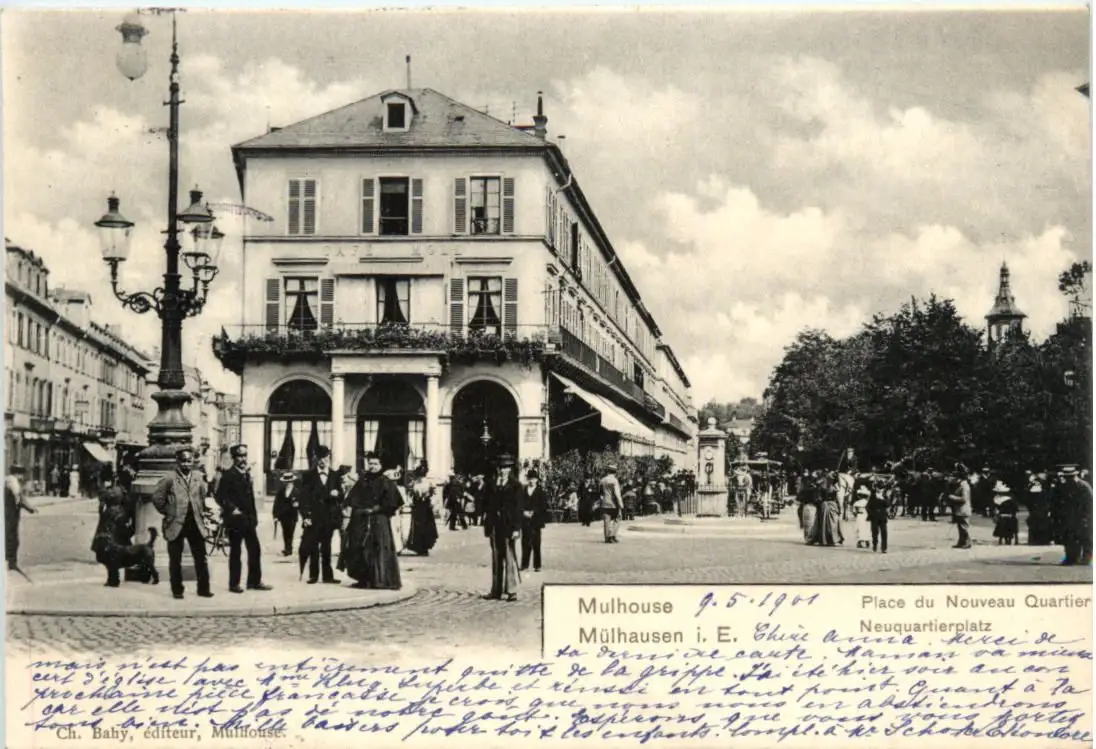 CAFÉ MOLL
Mulhouse 9.5.1901 Place du Nouveau Quartier
Mülhausen i. E. Neuquartierplatz
Chère Anna Merci de
ta dernière carte Maman va mieux
mais n'est pas entièrement quitte de la grippe. J'ai été hier soir au con
cert d'église avec Mme Klug superbe et réussi en tout point. Quant à la
prochaine pièce française je crois que nous nous en abstiendrons
car elle n'est pas de notre goût. Espérons que vous vous portez
tous bien. Mille baisers pour toi et les enfants. Compl. à Mr
Ch. Bahy, éditeur, Mulhouse.